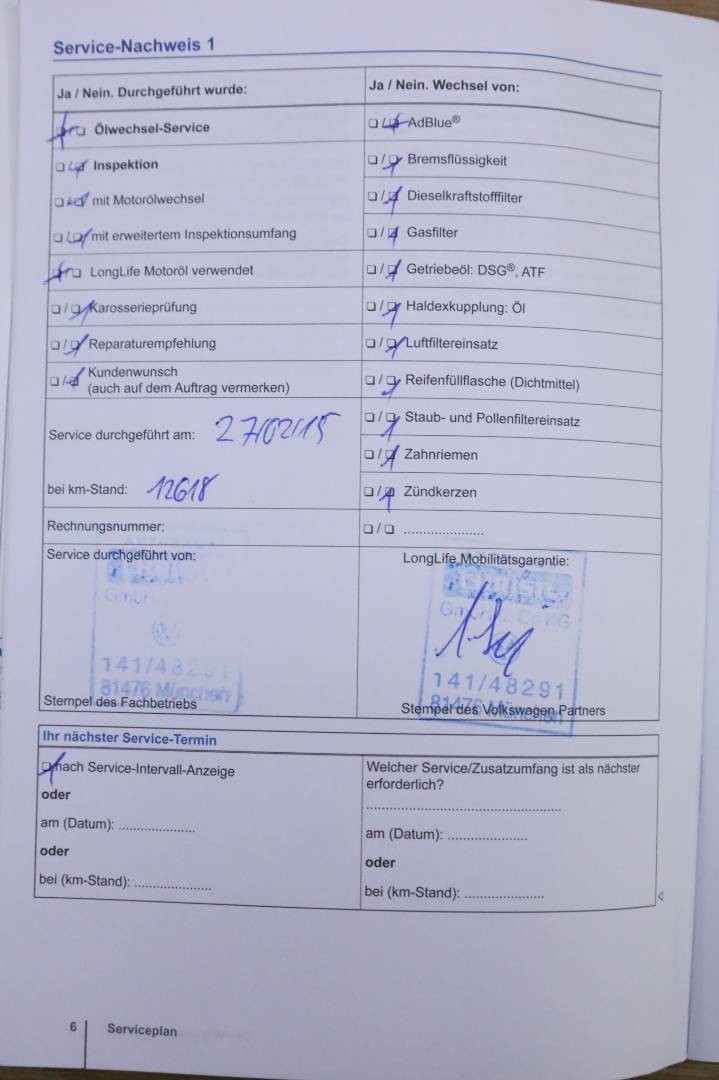 Service-Nachweis 1
Ja / Nein. Durchgeführt wurde:
Ölwechsel-Service
Inspektion
mit Motorölwechsel
mit erweitertem Inspektionsumfang
LongLife Motoröl verwendet
Karosserieprüfung
Reparaturempfehlung
Kundenwunsch
(auch auf dem Auftrag vermerken)
Service durchgeführt am: 27/02/15
bei km-Stand: 12618
Rechnungsnummer:
Ja / Nein. Wechsel von:
AdBlue®
Bremsflüssigkeit
Dieselkraftstofffilter
Gasfilter
Getriebeöl: DSG®, ATF
Haldexkupplung: Öl
Luftfiltereinsatz
Reifenfüllflasche (Dichtmittel)
Staub- und Pollenfiltereinsatz
Zahnriemen
Zündkerzen
Service durchgeführt von:
GmbH
141/48291
81476 München
Stempel des Fachbetriebs
LongLife Mobilitätsgarantie:
GmbH & Co KG
141/48291
81476 München
Stempel des Volkswagen Partners
Ihr nächster Service-Termin
nach Service-Intervall-Anzeige
oder
am (Datum):
oder
bei (km-Stand):
Welcher Service/Zusatzumfang ist als nächster
erforderlich?
am (Datum):
oder
bei (km-Stand):
6 Serviceplan